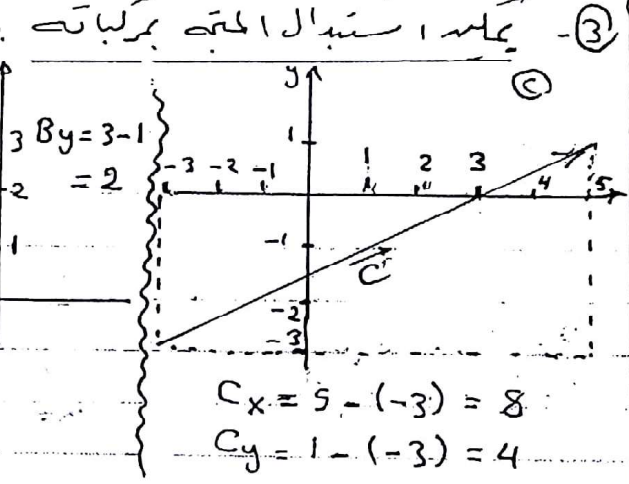 3- يمكننا استبدال المتجه بمركباته .
C
y
3 By = 3-1
= 2
2
1
1
-3 -2 -1 1 2 3 4 5
-1
C
-2
-3
Cx = 5 - (-3) = 8
Cy = 1 - (-3) = 4